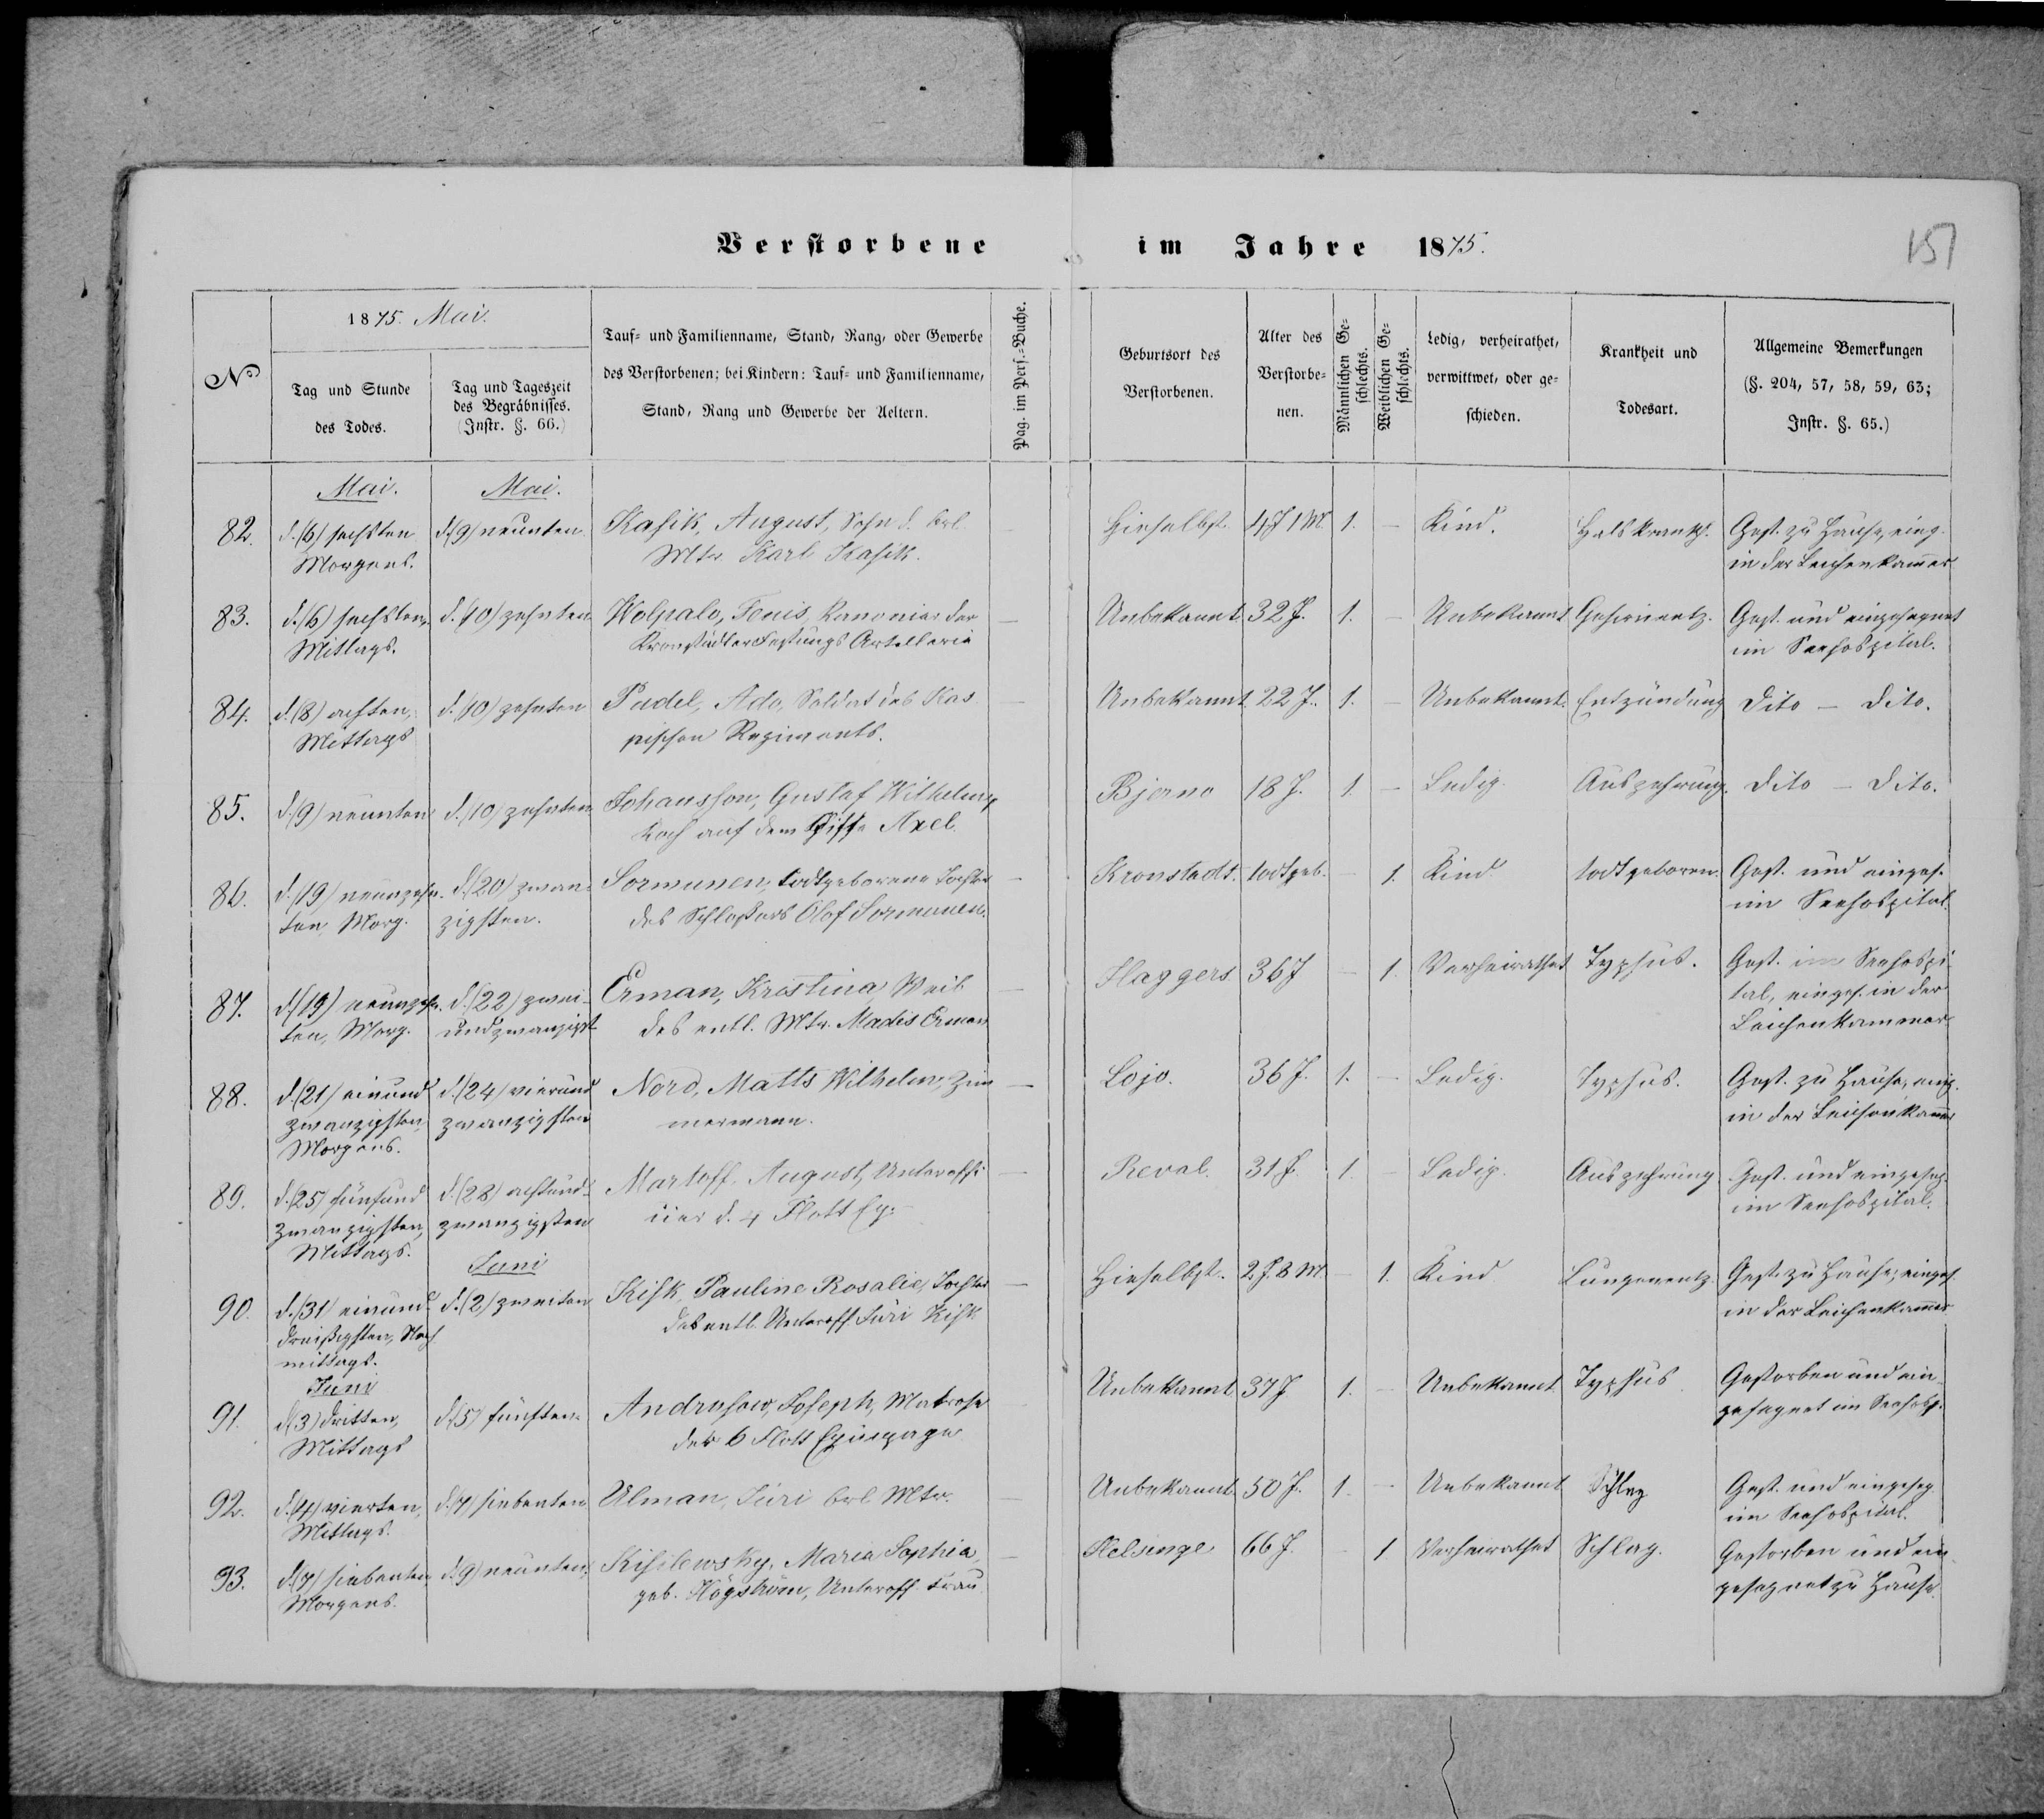 Verstorbene im Jahre 1875.
151
No
1875. Mai.
Tag und Stunde des Todes.
Tag und Tageszeit des Begräbnisses. (Instr. §. 66.)
Tauf- und Familienname, Stand, Rang, oder Gewerbe des Verstorbenen; bei Kindern: Tauf- und Familienname, Stand, Rang und Gewerbe der Aeltern.
Pag. im Pers.-Buche.
Geburtsort des Verstorbenen.
Alter des Verstorbenen.
Männlichen Geschlechts.
Weiblichen Geschlechts.
Ledig, verheirathet, verwittwet, oder geschieden.
Krankheit und Todesart.
Allgemeine Bemerkungen (§. 204, 57, 58, 59, 63; Instr. §. 65.)
Mai. Mai.
82. d. (6) sechsten d. (9) neunten Kasik, August, Sohn d. brl. — Hieselbst 4 J 1 M. 1. — Kind. Halskrankh. Gest. zu Hause, eing.
Morgens. Mtr. Karl Kasik. in der Leichenkamer
83. d. (6) sechsten, d. (10) zehnten Wolpalo, Tenis, Kanonier der — Unbekannt 32 J. 1. — Unbekannt Gehirnentz. Gest. und eingesegnet
Mittags. Kronstädter Festungs Artellerie im Seehospital.
84. d. (8) achten, d. (10) zehnten Padel, Ado, Soldat des Kas — Unbekannt 22 J. 1. — Unbekannt. Entzündung Dito — Dito.
Mittags pischen Regiments.
85. d. (9) neunten d. (10) zehnten Johansson, Gustaf Wilhelm, Bjerno 18 J. 1. — Ledig. Auszehrung. Dito — Dito.
Koch auf dem Schiffe Axel.
86. d. (19) neunzehn- d. (20) zwan- Sormunen, todtgeborene Tochter — Kronstadt. todtgeb. — 1. Kind todtgeboren. Gest. und eingeseg.
ten, Morg. zigsten. des Schloßers Olof Sormunen. im Seehospital.
87. d. (19) neunzehn- d. (22) zwei- Erman, Kristina, Weib — Haggers 36 J — 1. Verheirathet Typhus. Gest. im Seehospi-
ten, Morg. undzwanzigst des entl. Mtr. Madis Erman tal, einges. in der
Leichenkammer
88. d. (21) einund d. (24) vierund Nord, Matts Wilhelm, Zim — Lojo. 36 J. 1. — Ledig. Typhus. Gest. zu Hause, eing.
zwanzigsten, zwanzigsten mermann. in der Leichenkamer
Morgens.
89. d. (25) fünfund d. (28) achtund- Martoff, August, Unteroffi — Reval. 31 J. 1. — Ledig. Auszehrung Gest. und eingeseg.
zwanzigsten, zwanzigsten ier d. 4 Flott Eq. im Seehospital.
Mittags.
Juni
90. d. (31) einund- d. (2) zweiten Kisk, Pauline Rosalie, Tochter — Hieselbst. 2 J. 8 M. — 1. Kind Lungenentz. Gest. zu Hause; einges.
dreißigsten, Nach des entl. Unteroff. Juri Kisk. in der Leichenkamer
mittags.
Juni
91. d. (3) dritten, d. (5) fünften. Andrusow, Joseph, Matrose Unbekannt 37 J 1. — Unbekannt Typhus Gestorben und ein-
Mittags der 6 Flott Equipage gesegnet im Seehosp.
92. d. (4) vierten, d. (7) siebenten Ulman, Juri brl Mtr. — Unbekannt 50 J. 1. — Unbekannt Schlag Gest. und eingeseg.
Mittags. im Seehospital.
93. d. (7) siebenten, d. (9) neunten, Kisilewsky, Maria Sophia, — Helsinge 66 J. — 1. Verheirathet Schlag. Gestorben und ein-
Morgens. geb. Högström, Unteroff. Frau. gesegnet zu Hause.